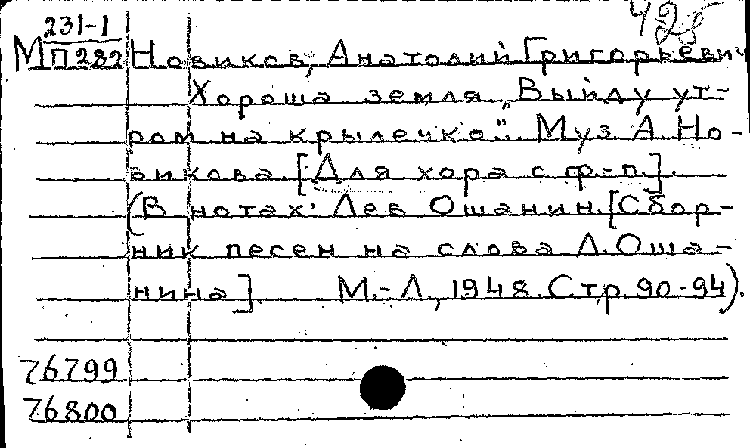 428
231-1
МП282 Новиков, Анатолий Григорьевич
Хороша земля „Выйду ут-
ром на крылечко". Муз А. Но-
викова. [Для хора с ф-п.].
(В нотах: Лев Ошанин. [Сбор-
ник песен на слова Л. Оша-
нина]. М.-Л., 1948. Стр. 90-94).
76799
76800